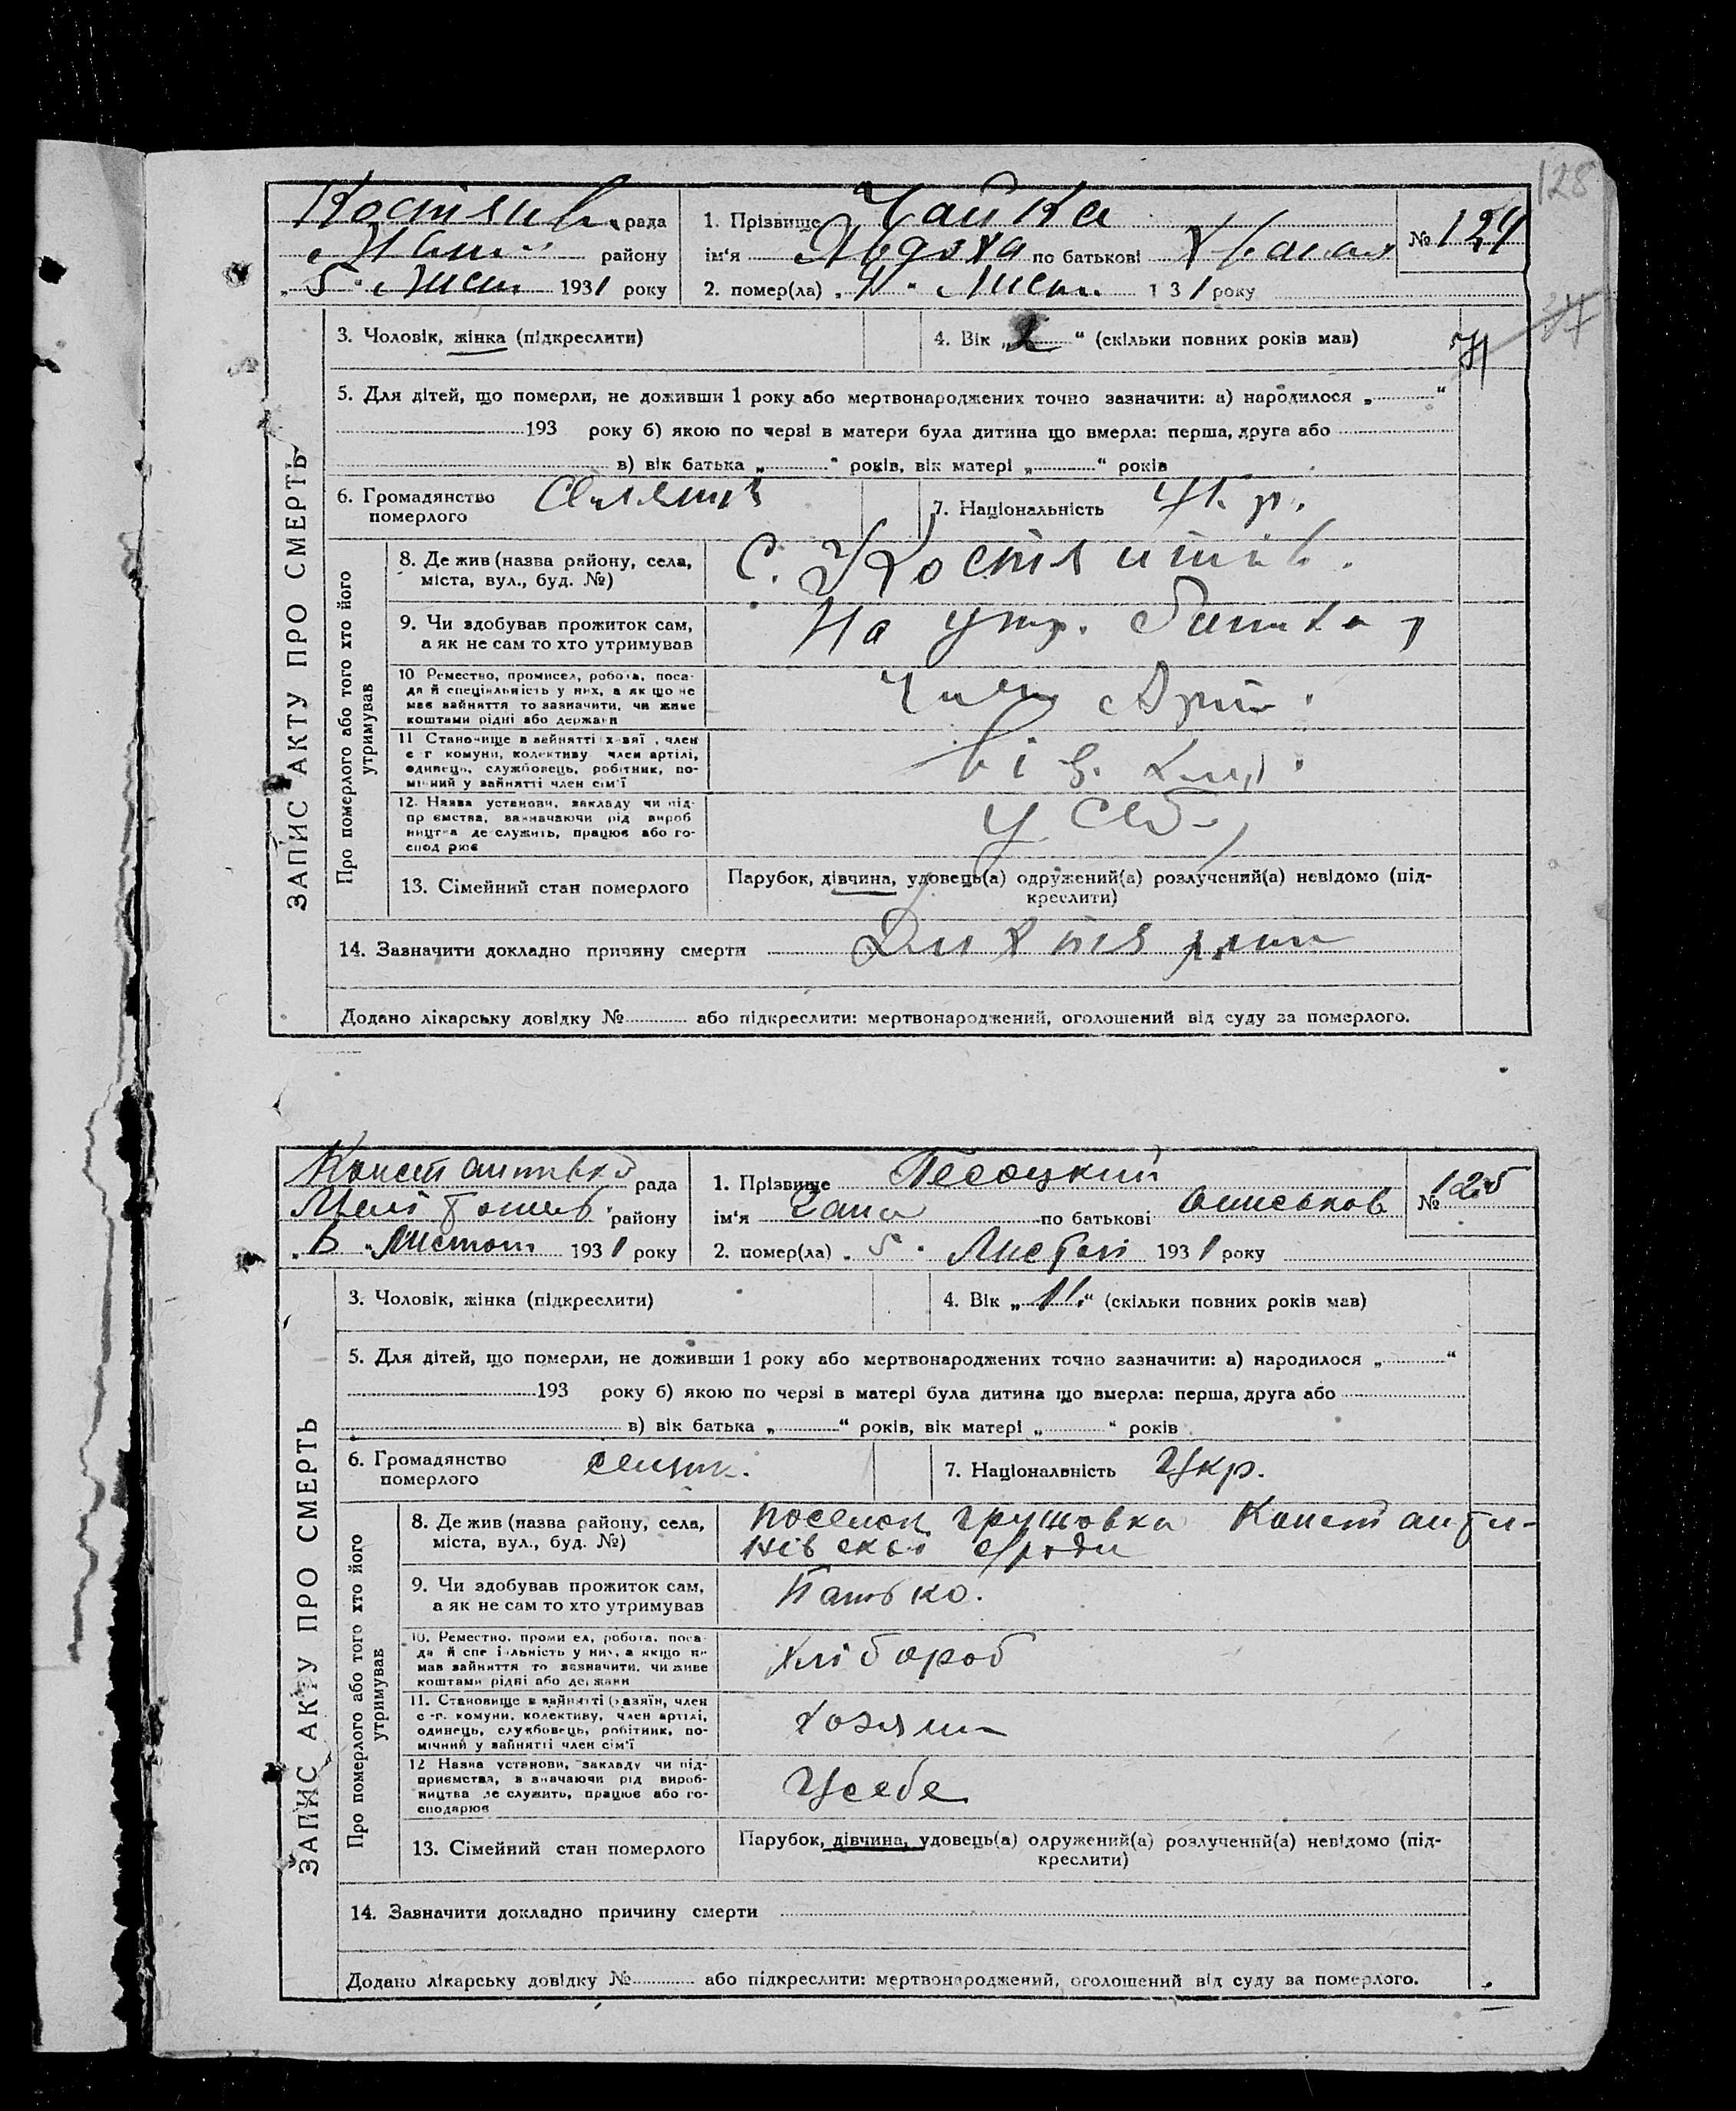 128
рада
району
„ 5 " Лист 1931 року
1. Прізвище Чайка
ім'я Явдоха по батькові
2. помер(ла) „ 4 " Лист. 1 3 1 року
№ 124
3. Чоловік, жінка (підкреслити)
4. Вік „ 2 " (скільки повних років мав)
5. Для дітей, що померли, не доживши 1 року або мертвонароджених точно зазначити: а) народилося „ "
193 року б) якою по черзі в матери була дитина що вмерла: перша, друга або
в) вік батька „ " років, вік матері „ " років
6. Громадянство
померлого
7. Національність Укр.
ЗАПИС АКТУ ПРО СМЕРТЬ
Про померлого або того хто його
утримував
8. Де жив (назва району, села,
міста, вул., буд. №)
С.
9. Чи здобував прожиток сам,
а як не сам то хто утримував
На утр. батька
10 Ремество, промисел, робота, поса-
да й спеціяльність у них, а як що не
має зайняття то зазначити, чи живе
коштами рідні або держави
Член Арт.
11 Становище в зайнятті х зяї , член
с г комуни, колективу член артілі,
одинець, службовець, робітник, по-
мічний у зайнятті член сім'ї
12. Назва установи, закладу чи під-
пр ємства, зазначаючи рід вироб
ництва де служить, працює або го-
спод рює
у себ
13. Сімейний стан померлого
Парубок, дівчина, удовець(а) одружений(а) розлучений(а) невідомо (під-
креслити)
14. Зазначити докладно причину смерти
Додано лікарську довідку № або підкреслити: мертвонароджений, оголошений від суду за померлого.
рада
району
Листоп 1931 року
1. Прізвище Песоцкий
ім'я по батькові
2. помер(ла) „ 5 " 1931 року
№ 125
3. Чоловік, жінка (підкреслити)
4. Вік „ " (скільки повних років мав)
5. Для дітей, що померли, не доживши 1 року або мертвонароджених точно зазначити: а) народилося „ "
193 року б) якою по черзі в матері була дитина що вмерла: перша, друга або
в) вік батька „ " років, вік матері „ " років
6. Громадянство
померлого
7. Національність Укр.
ЗАПИС АКТУ ПРО СМЕРТЬ
Про померлого або того хто його
утримував
8. Де жив (назва району, села,
міста, вул., буд. №)
поселок грушовка Константи-
нівської с/ради
9. Чи здобував прожиток сам,
а як не сам то хто утримував
Батько.
10. Ремество, проми ел, робота, поса-
да й спе і льність у них, а якщо не
мав зайняття то зазначити, чи живе
коштами рідні або держави
Хлібороб
11. Становище в зайнятті (хазяїн, член
с -г. комуни, колективу, член артілі,
одинець, службовець, робітник, по-
мічний у зайнятті член сім'ї
хозяин
12 Назва установи, закладу чи під-
приємства, зазначаючи рід вироб-
ництва де служить, працює або го-
сподарює
Усебе
13. Сімейний стан померлого
Парубок, дівчина, удовець(а) одружений(а) розлучений(а) невідомо (під-
креслити)
14. Зазначити докладно причину смерти
Додано лікарську довідку № або підкреслити: мертвонароджений, оголошений від суду за померлого.